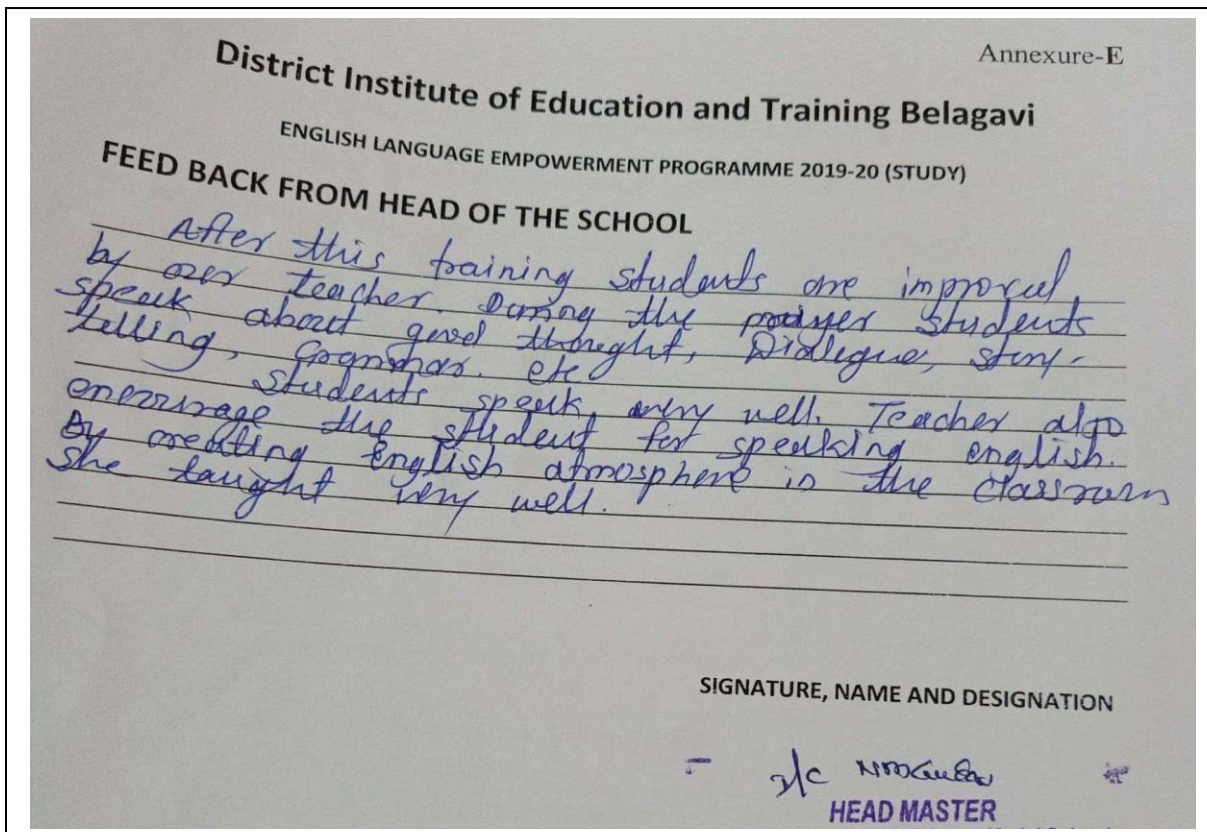 Annexure-E
District Institute of Education and Training Belagavi
ENGLISH LANGUAGE EMPOWERMENT PROGRAMME 2019-20 (STUDY)
FEED BACK FROM HEAD OF THE SCHOOL
After this training students are improved
by our teacher. During the prayer students
speak about good thought, Dialogue, story-
telling, Grammar. etc
students speak very well. Teacher also
encourage the student for speaking english.
By creating English atmosphere in the classroom
she taught very well.
SIGNATURE, NAME AND DESIGNATION
I/C
HEAD MASTER